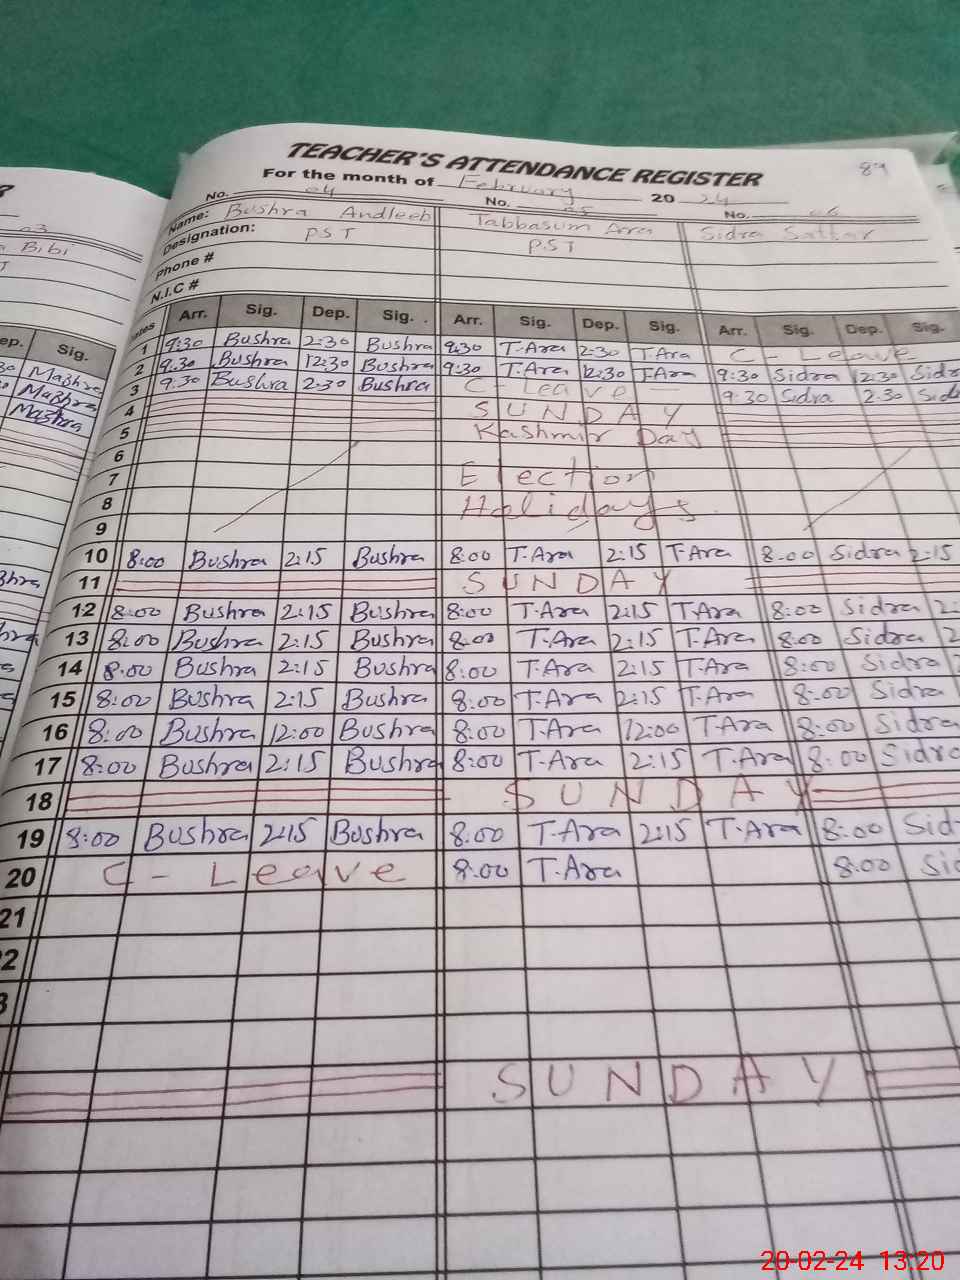 TEACHER'S ATTENDANCE REGISTER 89
For the month of February 20 24
No. 04 No. 05 No. 06
Name: Bushra Andleeb Tabbasum Ara Sidra Sattar
Designation: PST P.ST
Phone #
N.I.C #
Arr. Sig. Dep. Sig. Arr. Sig. Dep. Sig. Arr. Sig. Dep. Sig.
1 9:30 Bushra 2:30 Bushra 9:30 T.Ara 2:30 T.Ara C - Leave
2 9:30 Bushra 12:30 Bushra 9:30 T.Ara 12:30 T.Ara 9:30 Sidra 12:30 Sidr
3 9:30 Bushra 2:30 Bushra C - Leave - 9:30 Sidra 2:30 Sid
4 SUNDAY
5 Kashmir Day
6
7 Election
8 Holidays
9
10 8:00 Bushra 2:15 Bushra 8:00 T.Ara 2:15 T.Ara 8:00 Sidra 2:15
11 SUNDAY
12 8:00 Bushra 2:15 Bushra 8:00 T.Ara 2:15 T.Ara 8:00 Sidra 2:
13 8:00 Bushra 2:15 Bushra 8:00 T.Ara 2:15 T.Ara 8:00 Sidra 2
14 8:00 Bushra 2:15 Bushra 8:00 T.Ara 2:15 T.Ara 8:00 Sidra 2
15 8:00 Bushra 2:15 Bushra 8:00 T.Ara 2:15 T.Ara 8:00 Sidra
16 8:00 Bushra 12:00 Bushra 8:00 T.Ara 12:00 T.Ara 8:00 Sidra
17 8:00 Bushra 2:15 Bushra 8:00 T.Ara 2:15 T.Ara 8:00 Sidra
18 SUNDAY
19 8:00 Bushra 2:15 Bushra 8:00 T.Ara 2:15 T.Ara 8:00 Sid
20 C - Leave 8:00 T.Ara 8:00 Sid
21
2
3
SUNDAY
20-02-24 13:20